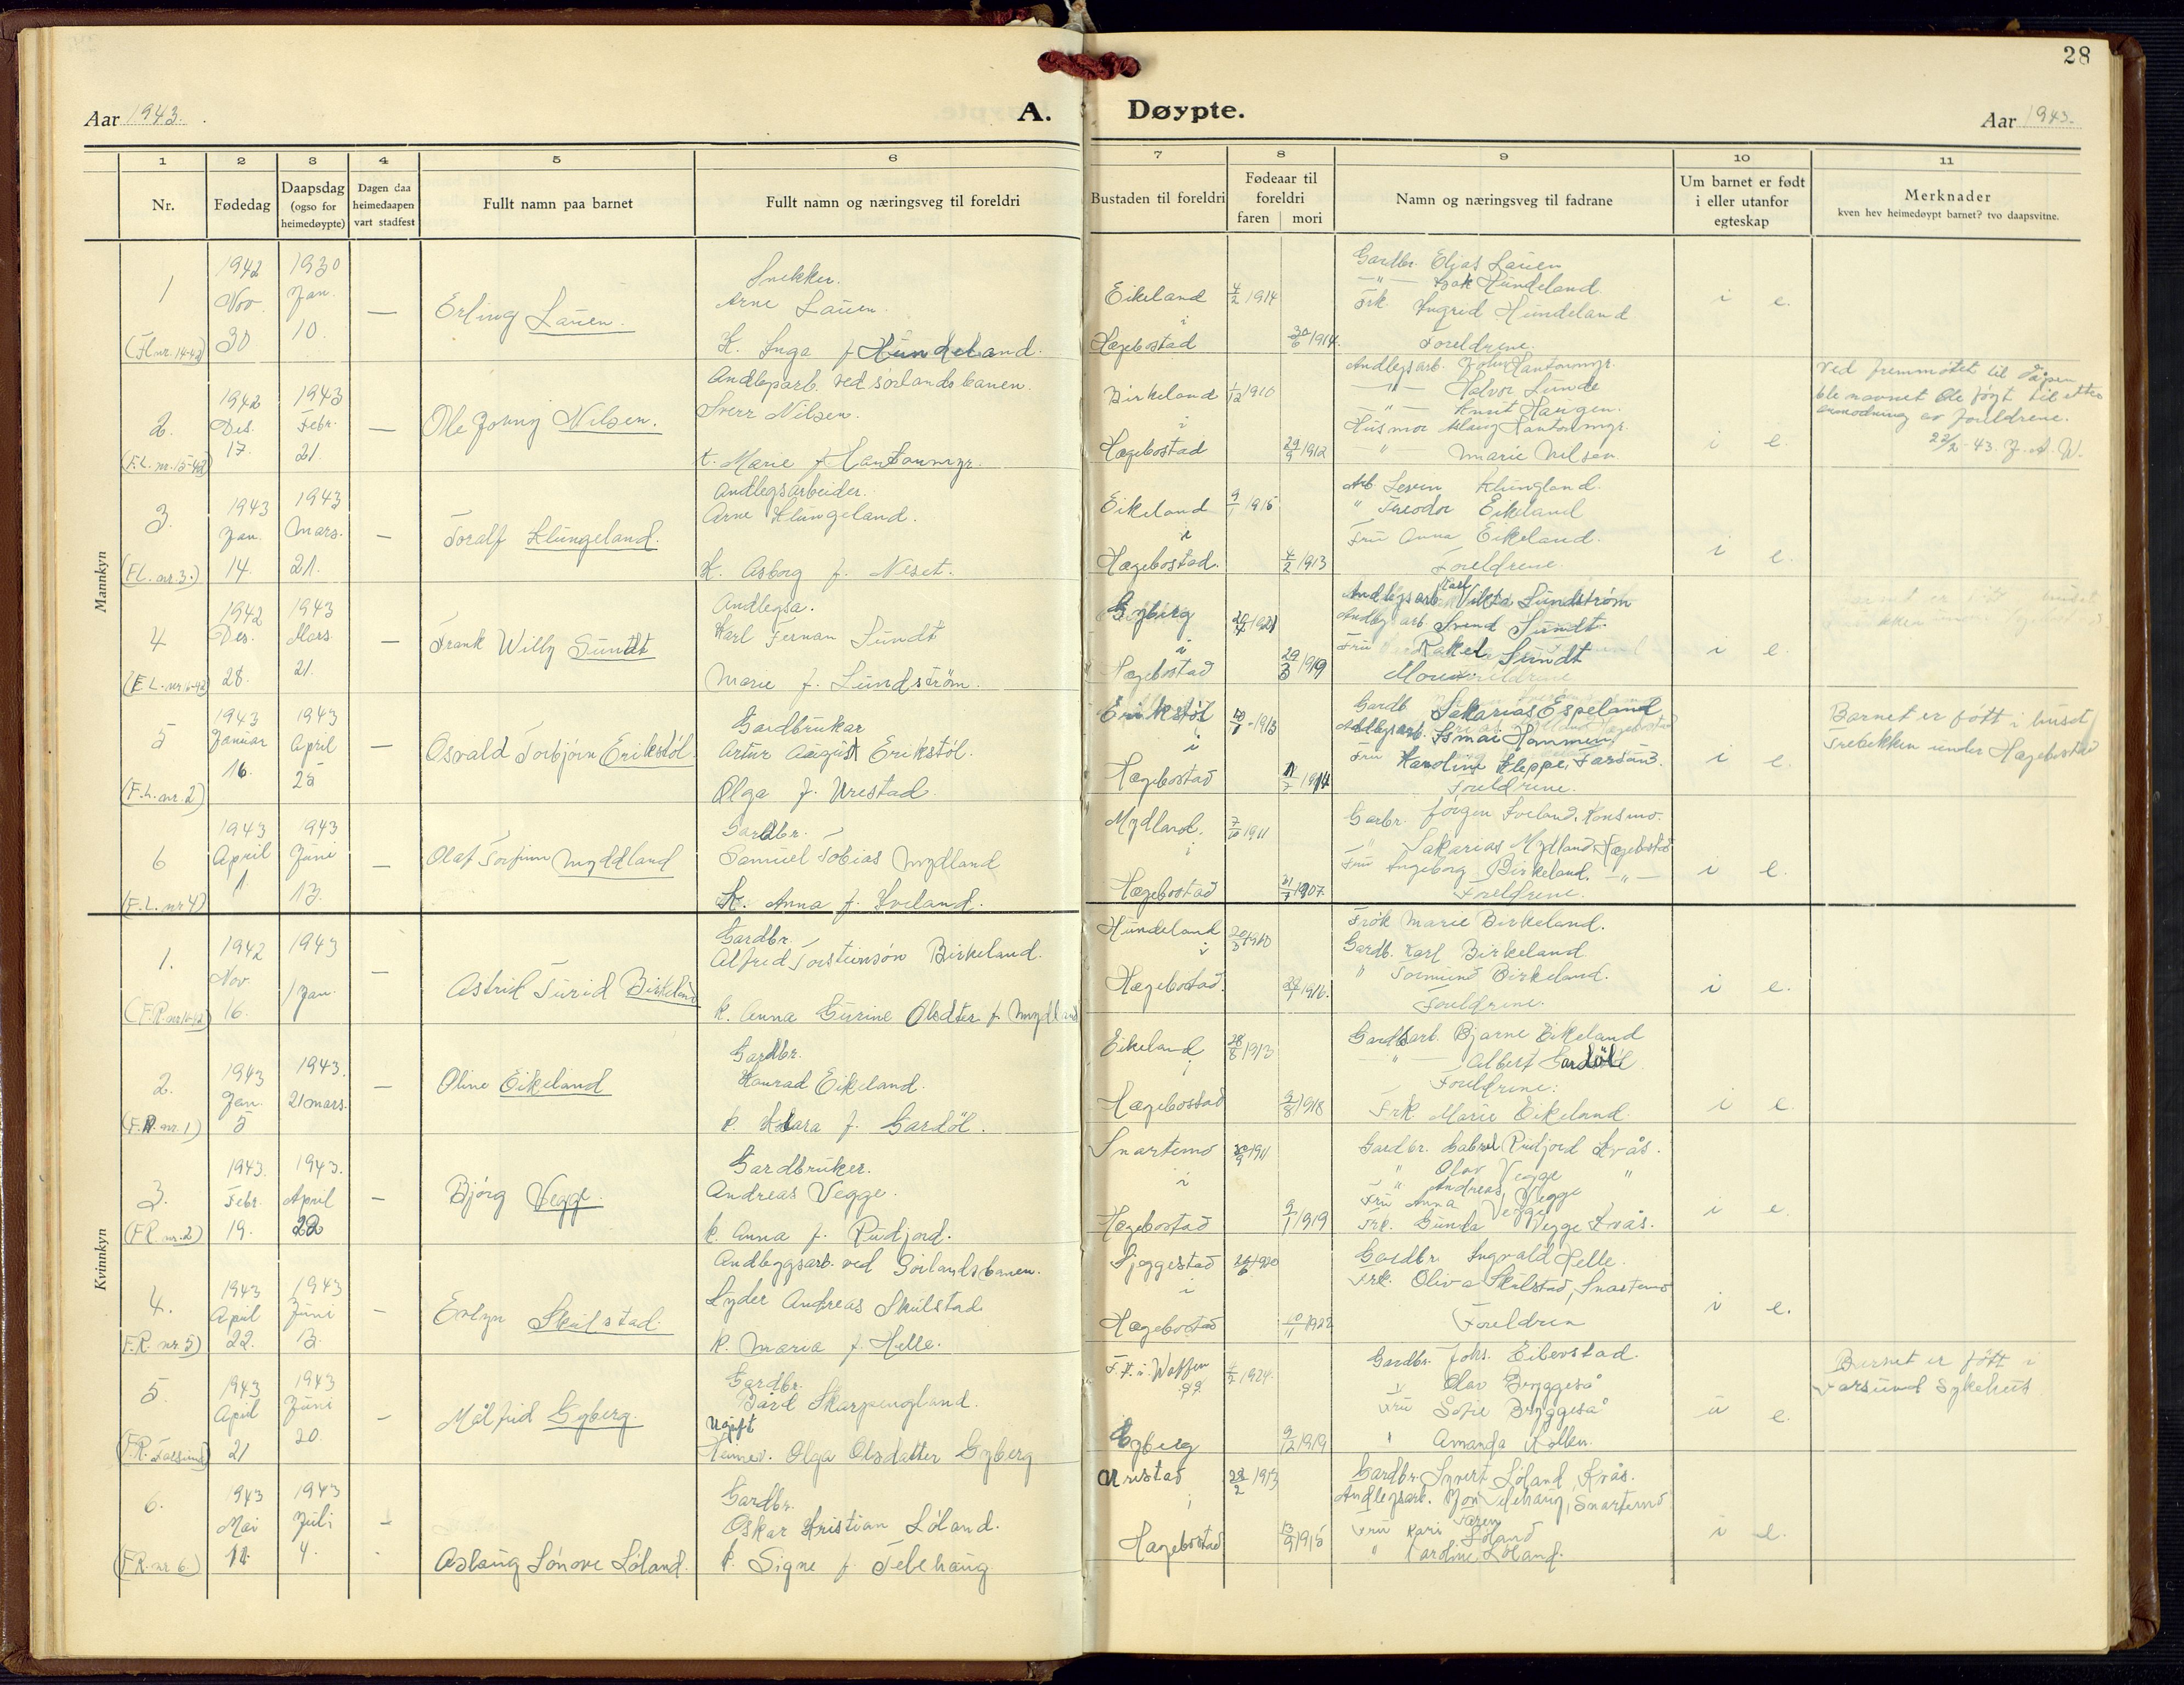 28
Aar 1943.
A. Døypte.
Aar 1943.
1 2 3 4 5 6 7 8 9 10 11
Nr.
Fødedag
Daapsdag (ogso for heimedøypte)
Dagen daa heimedaapen vart stadfest
Fullt namn paa barnet
Fullt namn og næringsveg til foreldri
Bustaden til foreldri
Fødeaar til foreldri
faren mori
Namn og næringsveg til fadrane
Um barnet er født i eller utanfor egteskap
Merknader
kven hev heimedøypt barnet? tvo daapsvitne.
Mannkyn
1
(Fl nr. 14-42)
1942 Nov. 30
1930 Jan. 10.
—
Erling Lauen.
Snekker.
Arne Lauen.
K. Inga f. Hundeland.
Eikeland
i
Hægebostad
4/2 1914
30/6 1914
Gardbr. Elias Lauen
—"— Isak Hundeland.
Frk. Ingrid Hundeland
Foreldrene.
i e.
2.
(F.L. nr. 15-42)
1942 Des. 17.
1943 Febr. 21.
—
Ole Johny Nilsen.
Andlegsarb. ved sørlandsbanen.
Sverr Nilsen.
Birkeland
i
Hægebostad
1/12 1910
29/9 1912
—"— Halvor Lunde
—"— Knut Haugen.
—"— Marie Nilsen
i e.
Ved fremmøtet til dåpen
ble navnet Ole føyt til etter
anmodning av foreldrene.
22/2-43. J. A. W.
3.
(F.L. nr. 3.)
1943 Jan. 14.
1943 Mars. 21.
—
Toralf Klungeland.
Andlegsarbeider.
Arne Klungeland.
K. Asborg f. Neset.
Eikeland
i
Hægebostad.
9/1 1915
4/2 1913
Arb. Severin Klungland.
" Theodor Eikeland
Fru Anna Eikeland.
Foreldrene.
i e.
4
(F.L. nr. 16-42)
1942 Des. 28.
1943 Mars. 21.
—
Frank Willy Sundt
Andlegsa.
Karl Fernan Sundt
Marie f. Lundström.
Gyberg
i
Hægebostad
29/3 1919
Andlegsarb. Karl Vikta Lundström
Andlegsarb Svend Sundt.
Fru Rakel Sundt
i e.
5
(F.L. nr. 2)
1943 Januar 16.
1943 April 25
—
Osvald Torbjørn Erikstøl.
Gardbrukar
Artur August Erikstøl.
Olga f. Urestad.
Erikstøl
i
Hægebostad
Gardb Sakarias Espeland
Andlegsarb. Ismai Hommen
Fru Karoline Kleppe, Farsund.
Foreldrene.
i e.
Barnet er født i huset
Trebekken under Hægebostad
6
(F.L. nr 4)
1943 April 1.
1943 Juni 13.
—
Olaf Torfinn Myddland
Gardbr.
Samuel Tobias Mydland
K. Anna f. Kveland.
Mydland.
i
Hægebostad
7/10 1911
31/7 1907.
Garbr. Jørgen Iveland, Konsmo.
" Sakarias Mydland Hægebostad
Fru Ingeborg Birkeland. —"—
Foreldrene.
i e.
Kvinnkyn
1.
(F.R. nr 16-42)
1942 Nov. 16.
1943 1 Jan.
—
Astrid Turid Birkeland
Gardbr.
Alfred Torsteinsøn Birkeland.
K. Anna Gurine Olsdter f. Mydland
Hundeland
i
Hægebostad.
20/3 1910
1916.
Frøk Marie Birkeland.
Gardb. Karl Birkeland
" Tormund Birkeland.
Foreldrene.
i e.
2.
(F.R. nr. 1)
1943 Jan. 5
1943. 21 mars.
—
Oline Eikeland
Gardbr.
Konrad Eikeland.
k. Klara f. Gardöl.
Eikeland
i
Hægebostad
28/8 1913
9/8 1918
Gardsarb. Bjarne Eikeland
—"— Albert Gardöl
Foreldrene.
Frk. Marie Eikeland.
i e.
3.
(F.R. nr. 2)
1943. Febr. 19.
1943. April 22
—
Bjørg Vegge.
Gardbruker.
Andreas Vegge.
k. Anna f. Rudjord.
Snartemo
i
Hægebostad
30/9 1911
9/1 1919
Gardbr. Gabriel Rudjord Kvås.
" Olav Vegge "
" Andreas Vegge
Fru Anna Vegge
Frk. Gunda Vegge Kvås.
i e.
4.
(F.R. nr. 5)
1943 April 22.
1943 Juni 3.
—
Evelyn Skulstad.
Andleggsarb. ved Sørlandsbanen.
Lyder Andreas Skulstad
k. Maria f. Helle.
Sjeggestad
i
Hægebostad
26/6 1920
10/11 1922
Gardbr. Ingvald Helle.
Frk. Oliva Skulstad, Snartemo
Foreldren
i e.
5.
(F.R. Farsund)
1943 April 21
1943 Juni 20.
—
Målfrid Gyberg.
Gardbr.
Bård Skarpengland.
Ugift
Heimev. Olga Olsdatter Gyberg
Gyberg
1924.
9/12 1919
Gardbr. Johs. Eiberstad.
" Olav Bryggeså
Fru Sofie Bryggeså
" Amanda Kollen.
u e.
Barnet er født i
Farsund Sykehus.
6.
(F.R. nr 6)
1943 Mai 11.
1943 Juli 4.
—
Aslaug Sónove Løland.
Gardbr.
Oskar Kristian Løland.
k. Signe f. Tele haug.
Urestad
i
Hægebostad
28/2 1913
13/9 1915
Gardbr. Syvert Løland, Kvås.
Fru Kari Løland
" Caroline Løland.
i e.